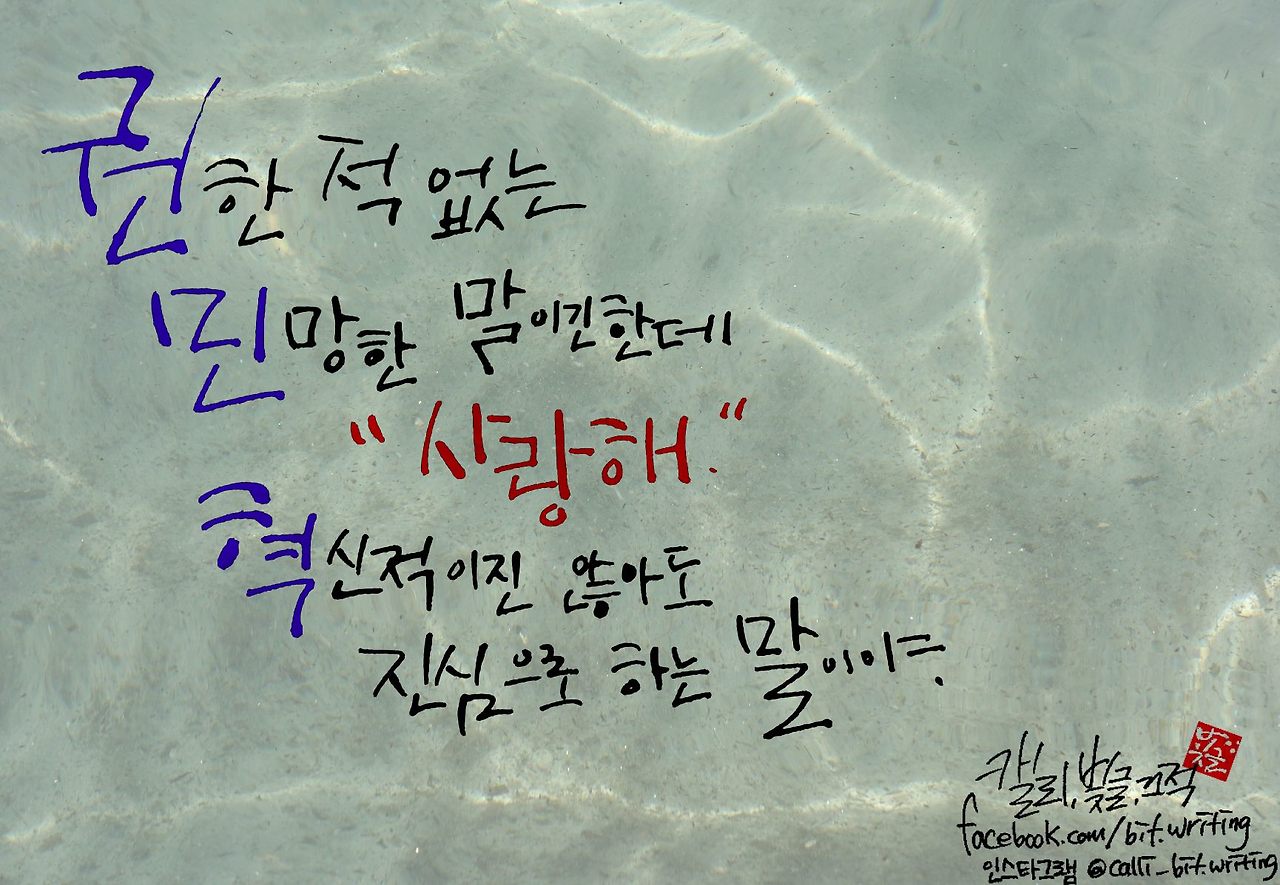 권한 적 없는
민망한 말이긴한데
"사랑해."
혁신적이진 않아도
진심으로 하는 말이야.
캘리, 빛글, 끄적
facebook.com/bit.writing
인스타그램 @calli_bit.writing
빛글